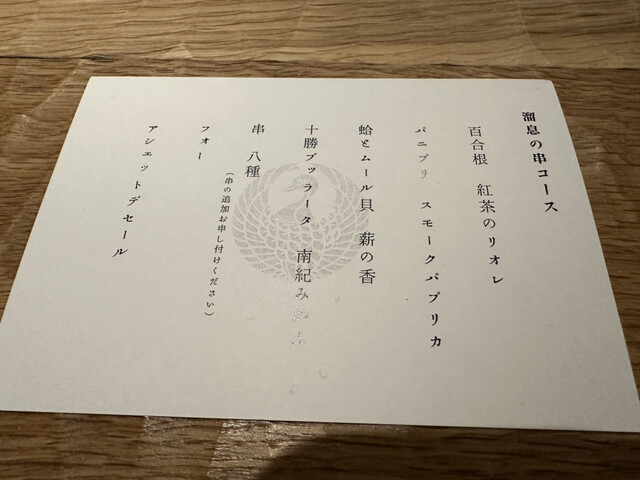 溜息の串コース
百合根 紅茶のリオレ
パニプリ スモークパプリカ
蛤とムール貝 薪の香
十勝ブッラータ 南紀み
串 八種
(串の追加お申し付けください)
フォー
アシェットデセール